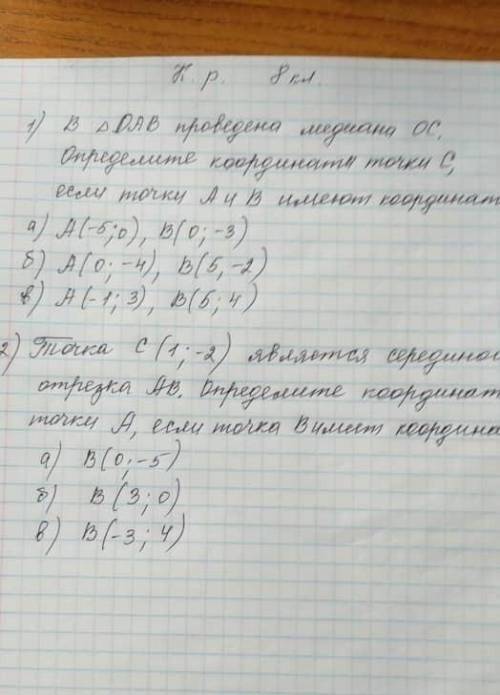 К. р. 8 кл.
1) В △ OAB проведена медиана OC.
Определите координаты точки C,
если точки A и B имеют координат
а) A(-5;0), B(0; -3)
б) A(0; -4), B(5, -2)
в) A(-1; 3), B(5; 4)
2) Точка C (1; -2) является середино
отрезка AB. Определите координат
точки A, если точка B имеет координа
а) B(0; -5)
б) B (3; 0)
в) B(-3; 4)